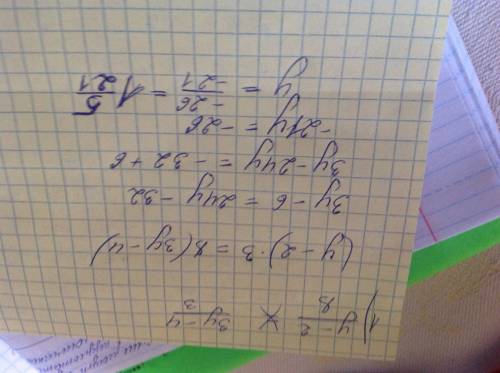 1) y-2/8 X 3y-4/3
(y-2)·3 = 8(3y-4)
3y-6 = 24y-32
3y-24y = -32+6
-21y = -26
y = -26/-21 = 1 5/21